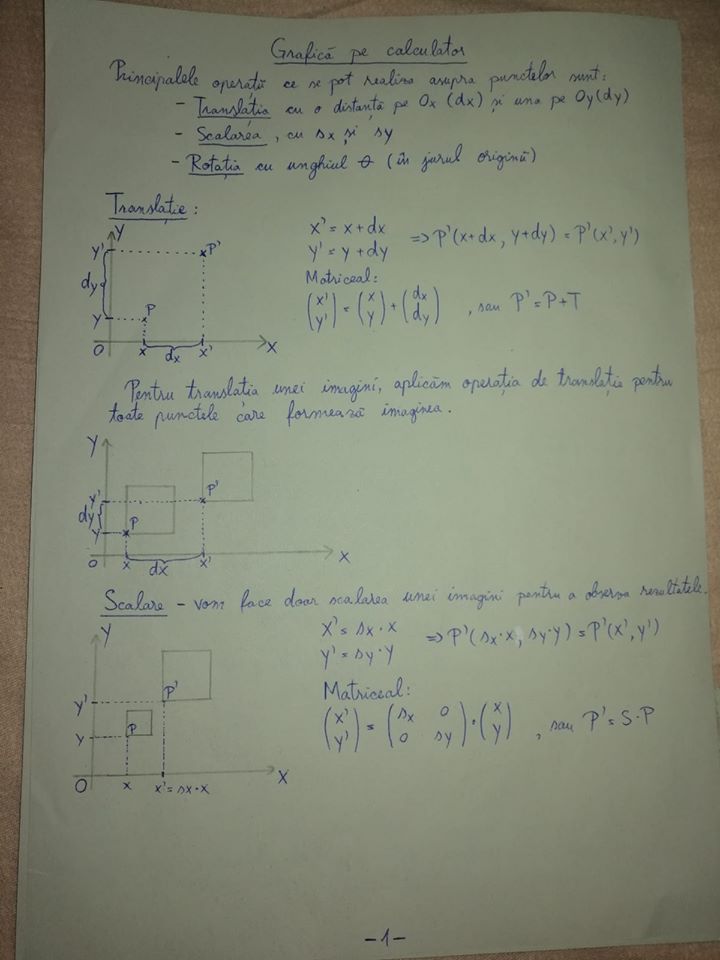 Grafică pe calculator
Principalele operații ce se pot realiza asupra punctelor sunt:
- Translația cu o distanță pe Ox (dx) și una pe Oy (dy)
- Scalarea, cu sx și sy
- Rotația cu unghiul θ (în jurul originii)
Translație:
x' = x + dx
y' = y + dy
=> P'(x+dx, y+dy) = P'(x', y')
Matriceal:
(x' y') = (x y) + (dx dy), sau P' = P + T
Y
Y'
P'
dy
P
Y
O
x
dx
x'
X
Pentru translația unei imagini, aplicăm operația de translație pentru
toate punctele care formează imaginea.
Y
Y'
P'
dy
P
Y
O
x
dx
x'
X
Scalare - vom face doar scalarea unei imagini pentru a observa rezultatele.
x' = sx · x
y' = sy · y
=> P'(sx·x, sy·y) = P'(x', y')
Matriceal:
(x' y') = (sx 0 0 sy) · (x y), sau P' = S·P
Y
Y'
P'
Y
P
O
x
x' = sx · x
X
-1-